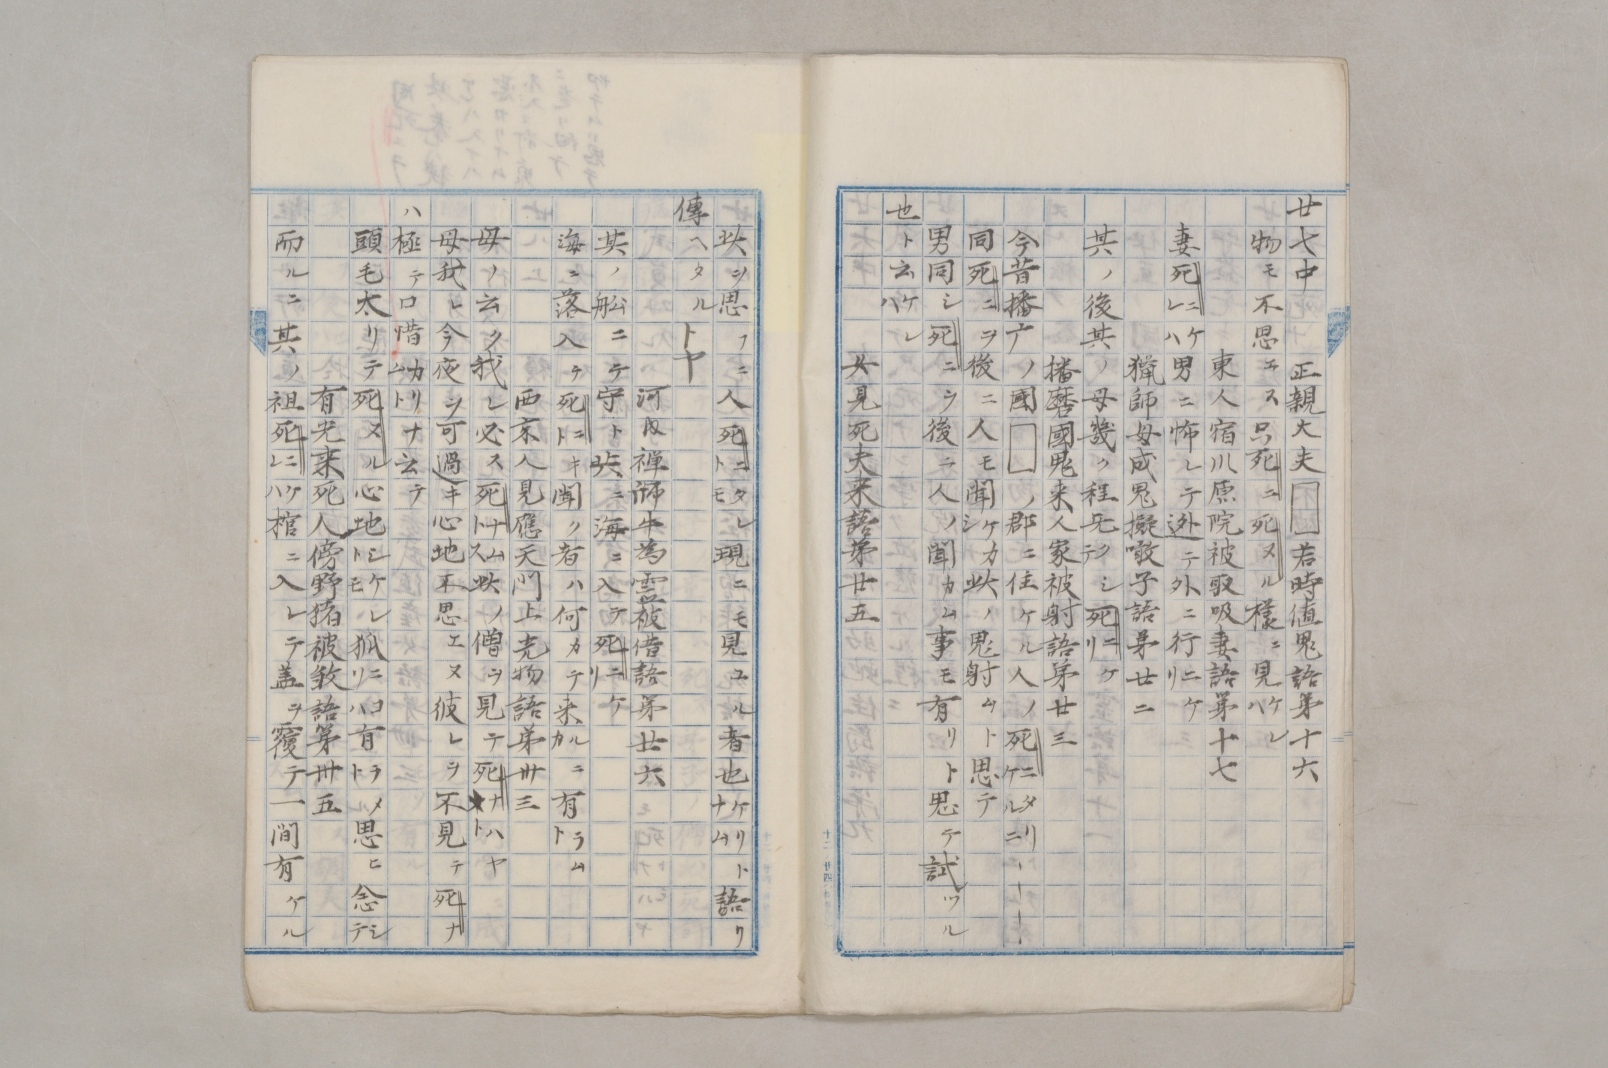 廿七中　正親大夫□若時値鬼語第十六
物モ不思エス只死ニ死ヌル様ニ見ケレハ
東人宿川原院被取吸妻語第十七
妻死ニケレハ男ニ怖レテ迯テ外ニ行ニケリ
猟師母成鬼擬噉子語第廿二
其ノ後其ノ母幾ク程无クシテ死ニケリ
播磨國鬼来人家被射語第廿三
今昔播广ノ國□ノ郡ニ住ケル人ノ死ニタリケルニ
同死ニヲ後ニ人モ聞ケカシ此ノ鬼射ムト思テ
男同シ死ニヲ後ニ人ノ聞カム事モ有リト思テ試ツル
也ト云ケレハ
女見死夫来語第廿五
此ヲ思フニ人死ニタレトモ現ニモ見ユル者也ケリトナム語リ
傳ヘタルトヤ
河内禅師牛為霊被借語第廿六
其ノ舩ニテ守ト此ニ海ニ入テ死ニケリ
海ニ落入テ死ニキト聞ク者ハ何カテ来ルニカ有ラムト
西京人見應天門上光物語第卅三
母ノ云ク我レ必ス死ナムトス此ノ僧ヲ見テ死ナハヤト
母我レ今夜ヲ可過キ心地不思エヌ彼レヲ不見テ死ナ
ムハ極テ口惜カリナト云テ
頭毛太リテ死ヌル心地シケレトモ狐ニコハ有ラメト思ヒ念シテ
有光来死人傍野猪被殺語第卅五
而ルニ其ノ祖死ニケレハ棺ニ入レテ蓋ヲ覆テ一間有ケル